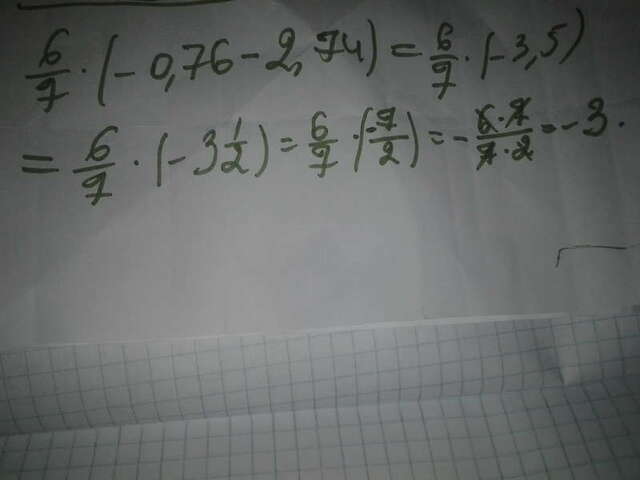 6/7 · (-0,76 - 2,74) = 6/7 · (-3,5)
= 6/7 · (-3 1/2) = 6/7 · (-7/2) = - 6·7/7·2 = -3.